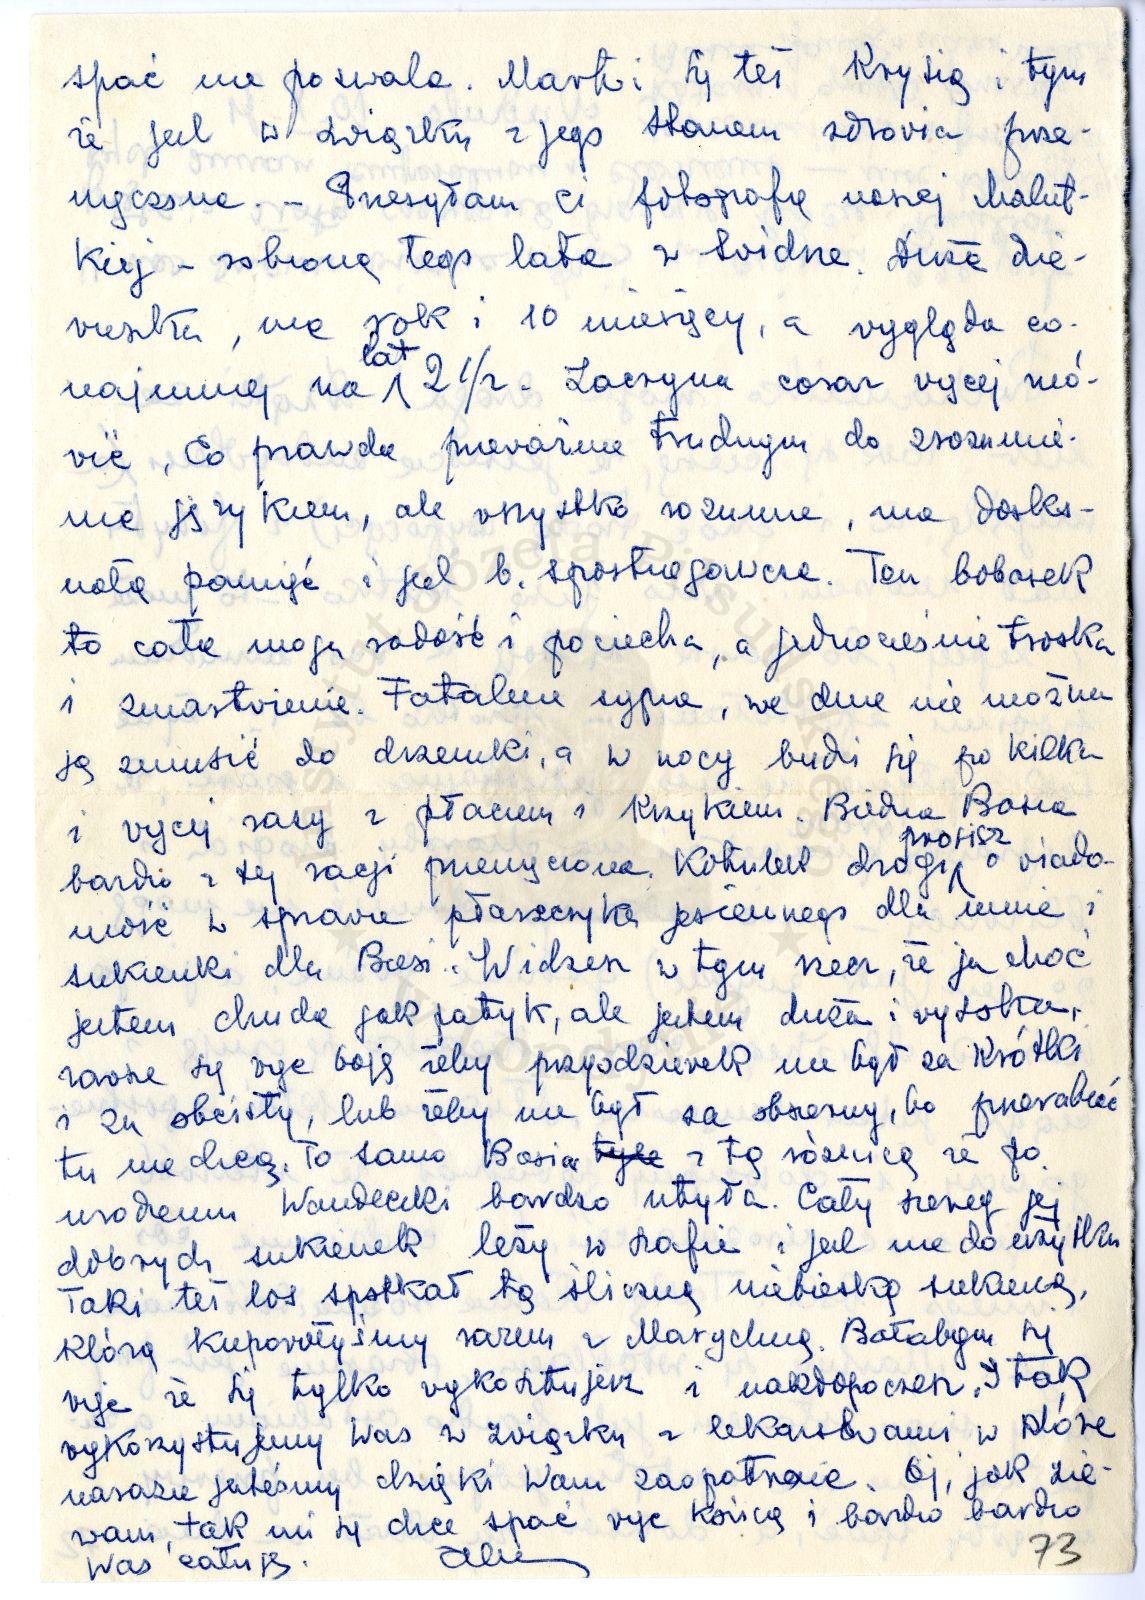 spać nie pozwala. Martwi się też Krysią i tym
że jest w związku z jego stanem zdrowia prze-
męczona. – Przesyłam ci fotografię naszej Malut-
kiej – zrobioną tego lata w Świdrze. Duża dzie-
wuszka, ma rok i 10 miesięcy, a wygląda co-
najmniej na lat 2 1/2. Zaczyna coraz więcej mó-
wić, Co prawda przeważnie trudnym do zrozumie-
nia językiem, ale wszystko rozumie, ma dosko-
nałą pamięć i jest b. spostrzegawcza. Ten bobasek
to cała moja radość i pociecha, a jednocześnie troska
i zmartwienie. Fatalnie sypia, we dnie nie można
ją zmusić do drzemki, a w nocy budzi się po kilka
i więcej razy z płaczem i krzykiem. Biedna Basia
bardzo z tej racji przemęczona. Kotulek drogi, prosisz o wiado-
mość w sprawie płaszczyka jesiennego dla mnie i
sukienki dla Basi. Widzisz w tym rzecz, że ja choć
jestem chuda jak patyk, ale jestem duża i wysoka,
zawsze się więc boję żeby przyodziewek nie był za krótki
i za obcisły, lub żeby nie był za obszerny, bo przerabiać
tu nie chcą. To samo Basia tyle z tą różnicą że po
urodzeniu Wandeczki bardzo utyła. Cały szereg jej
dobrych sukienek leży w szafie i jest nie do użytku
Taki też los spotkał tą śliczną niebieską suknię,
którą kupowałyśmy razem z Marychną. Bałabym się
więc że się tylko wykosztujesz i nakłopoczesz. I tak
wykorzystujemy Was w związku z lekarstwami w które
narazie jesteśmy dzięki Wam zaopatrzone. Oj, jak zie-
wam, tak mi się chce spać więc kończę i bardzo bardzo
Was całuję.
73